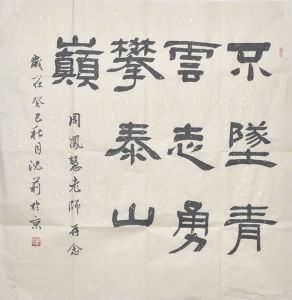 不墜青
雲志勇
攀泰山
巔
周鳳慧老师存念
歲在癸巳秋月沈莉於京